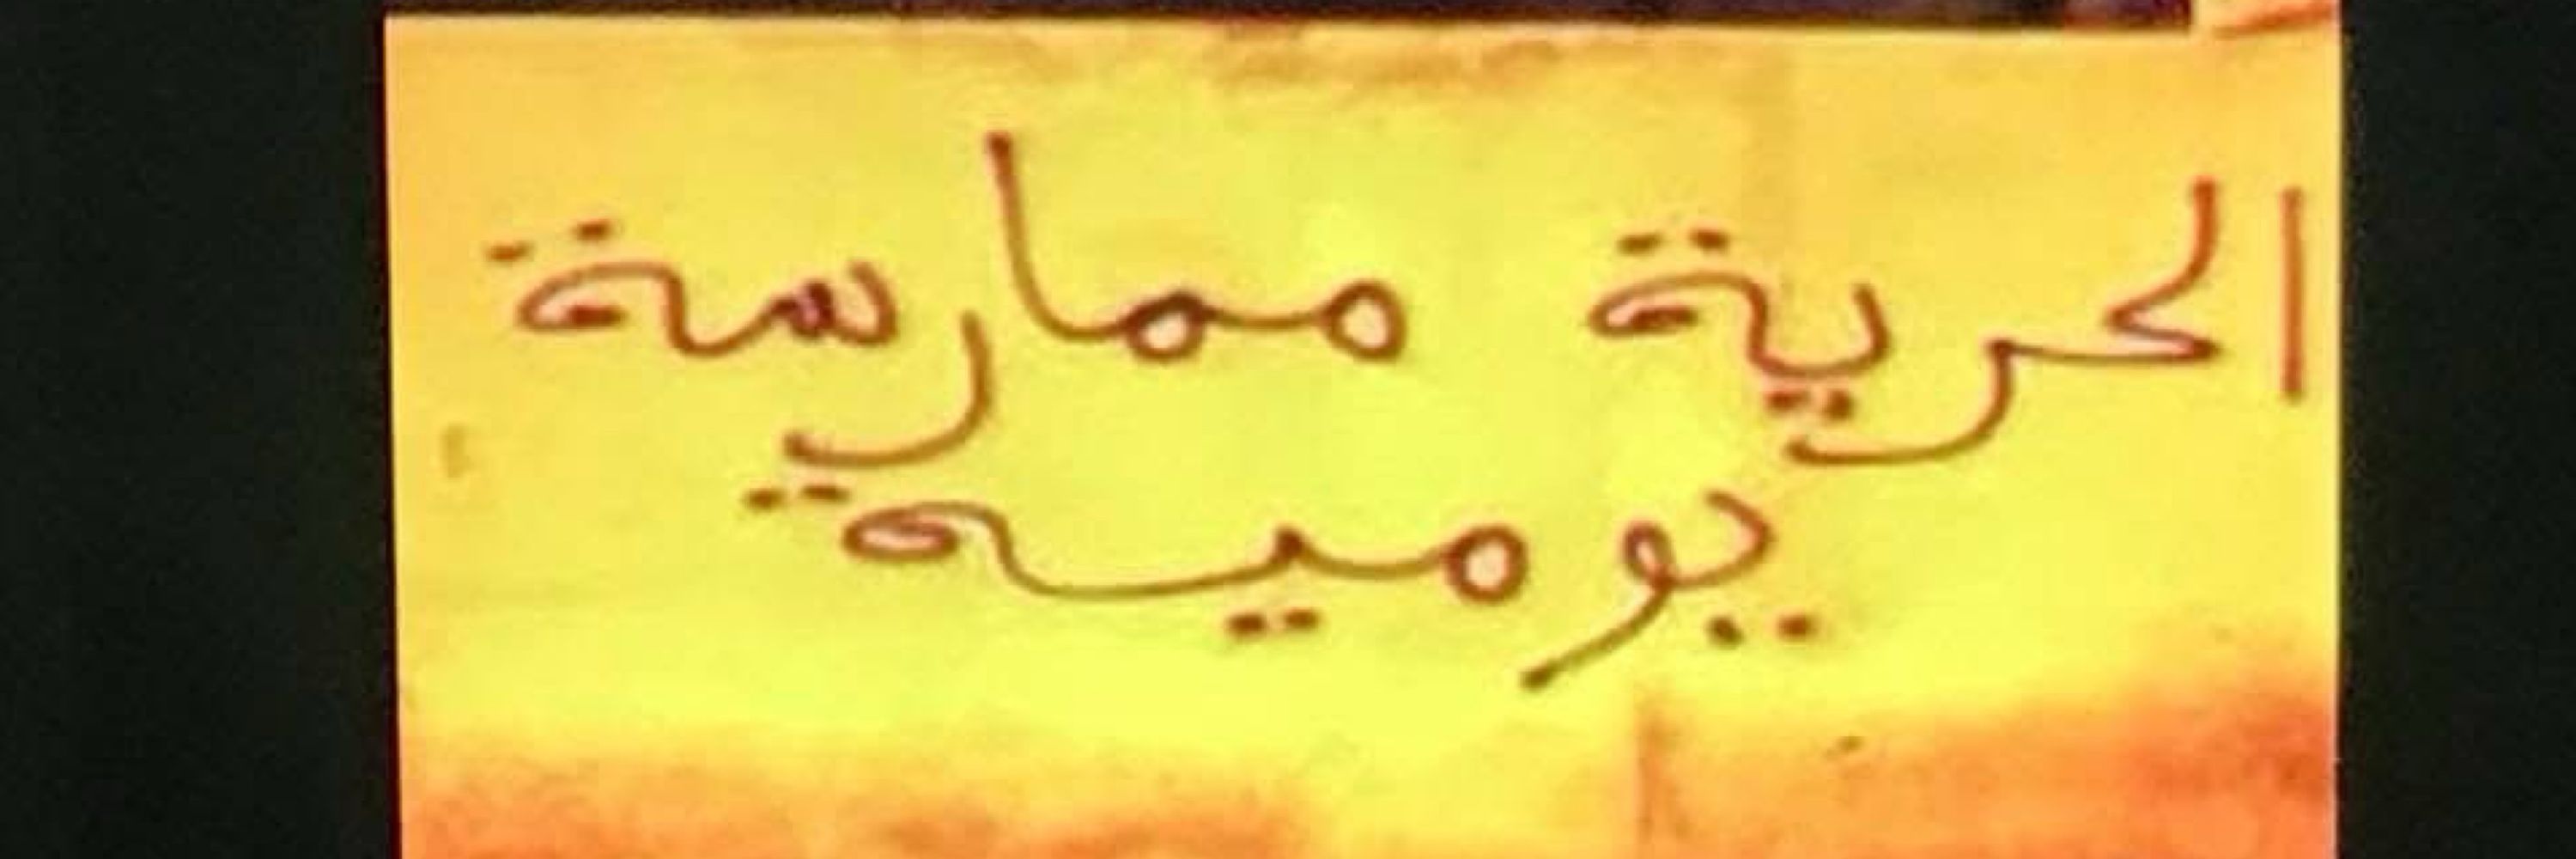 الحرية ممارسة
يومية